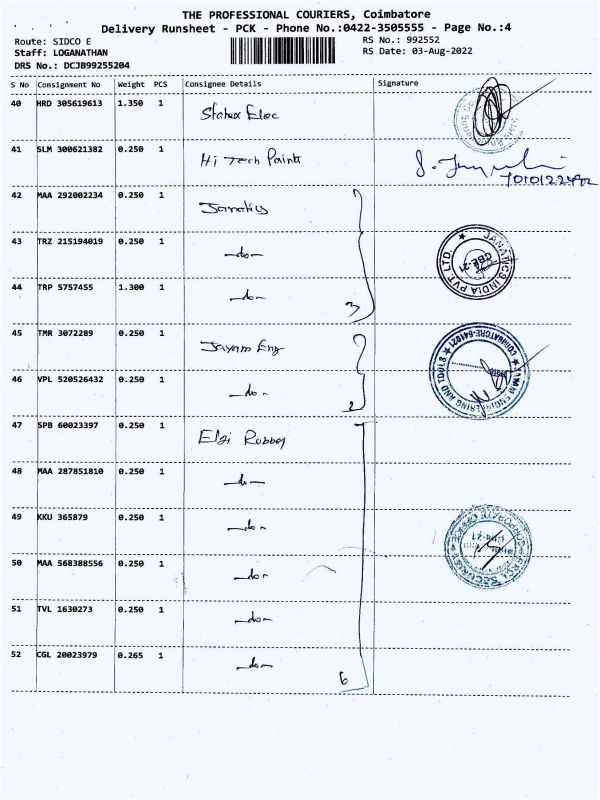 THE PROFESSIONAL COURIERS, Coimbatore
Delivery Runsheet - PCK - Phone No.:0422-3505555 - Page No.:4
Route: SIDCO E
RS No.: 992552
Staff: LOGANATHAN
RS Date: 03-Aug-2022
DRS No.: DCJB99255204
S No Consignment No Weight PCS Consignee Details Signature
40 HRD 305619613 1.350 1
41 SLM 300621382 0.250 1 Hi Tech Paints
42 MAA 292002234 0.250 1 Janatics
43 TRZ 215194019 0.250 1 -do-
44 TRP 5757455 1.300 1 -do- 3
JANATICS INDIA PVT. LTD.
CBE-21
45 TMR 3072289 0.250 1 Jayam Eng
46 VPL 520526432 0.250 1 -do- 2
ENGINEERING AND TOOLS ★ COIMBATORE-641021
47 SPB 60023397 0.250 1 Elgi Rubber
48 MAA 287851810 0.250 1 -do-
49 KKU 365879 0.250 1 -do-
50 MAA 568388556 0.250 1 -do-
51 TVL 1630273 0.250 1 -do-
52 CGL 20023979 0.265 1 -do- 6